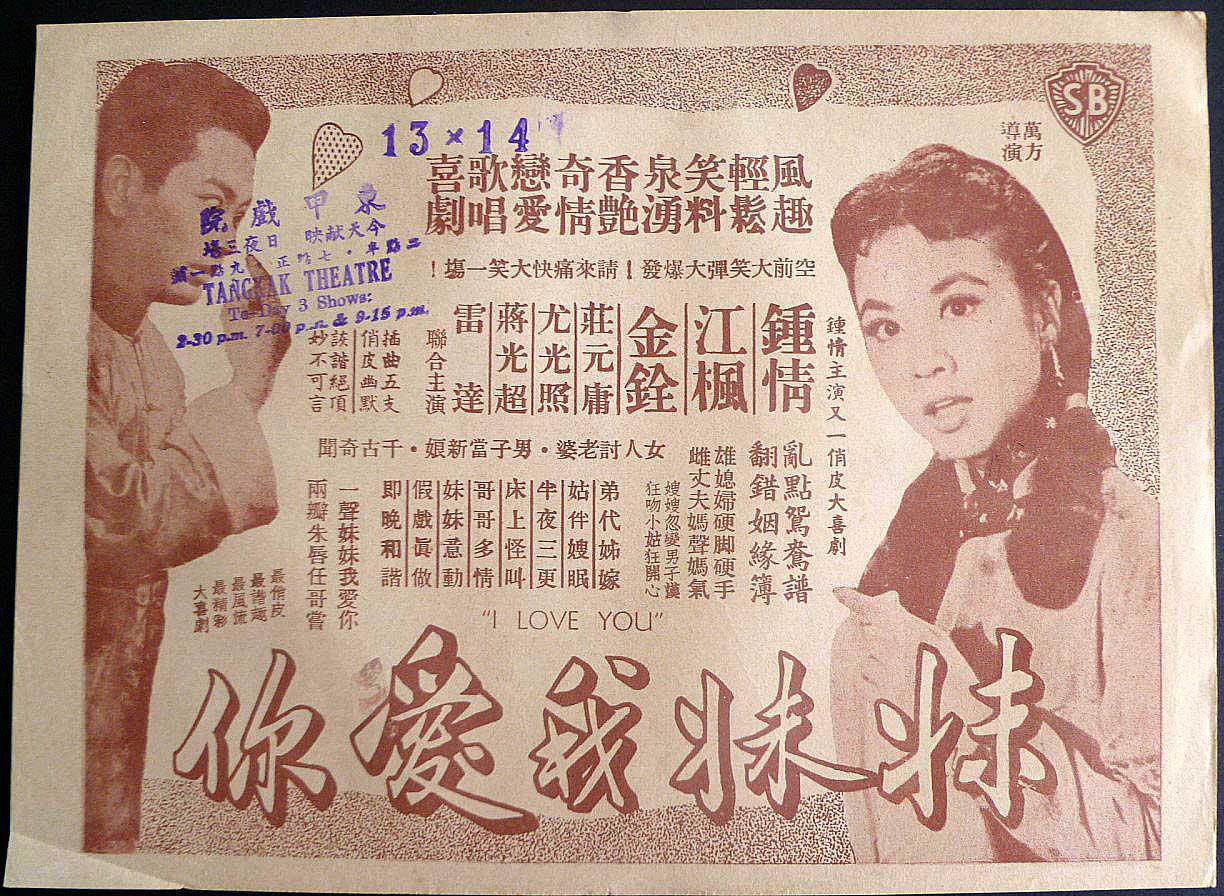 SB
萬方
導演
13 × 14
風趣
輕鬆
笑料
泉湧
香艷
奇情
戀愛
歌唱
喜劇
東甲戲院
今天献映 日夜三塲
二點半・七點正 九點一
TANGKAK THEATRE
To-Day 3 Shows:
2-30 p.m. 7-00 p.m. & 9-15 p.m.
空前大笑彈大爆發！請來痛快大笑一塲！
鍾情主演又一俏皮大喜劇
鍾情
江楓
金銓
莊元庸
尤光照
蔣光超
雷達
聯合主演
插曲五支
俏皮幽默
詼諧絕頂
妙不可言
女人討老婆・男子當新娘・千古奇聞
亂點鴛鴦譜
翻錯姻緣簿
雄媳婦硬脚硬手
雌丈夫媽聲媽氣
嫂嫂忽變男子漢
狂吻小姑狂開心
弟代姊嫁
姑伴嫂眠
半夜三更
床上怪叫
哥哥多情
妹妹意動
假戲眞做
即晚和諧
一聲妹妹我愛你
兩瓣朱唇任哥嘗
最俏皮
最諧趣
最風流
最精彩
大喜劇
"I LOVE YOU"
妹妹我愛你